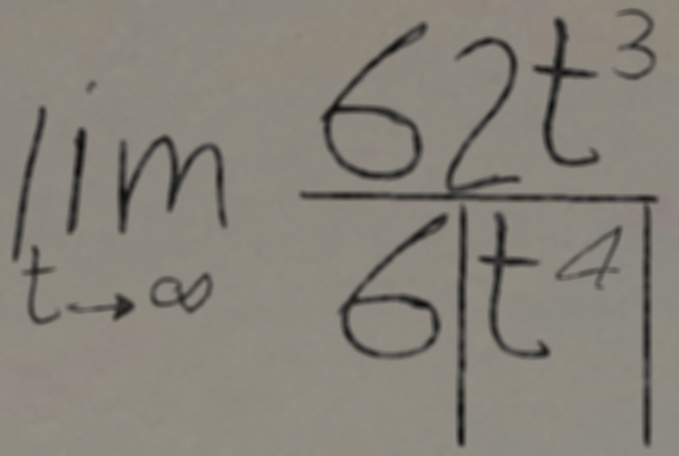 \lim_{t \to \infty} \frac{62t^3}{6|t^4|}